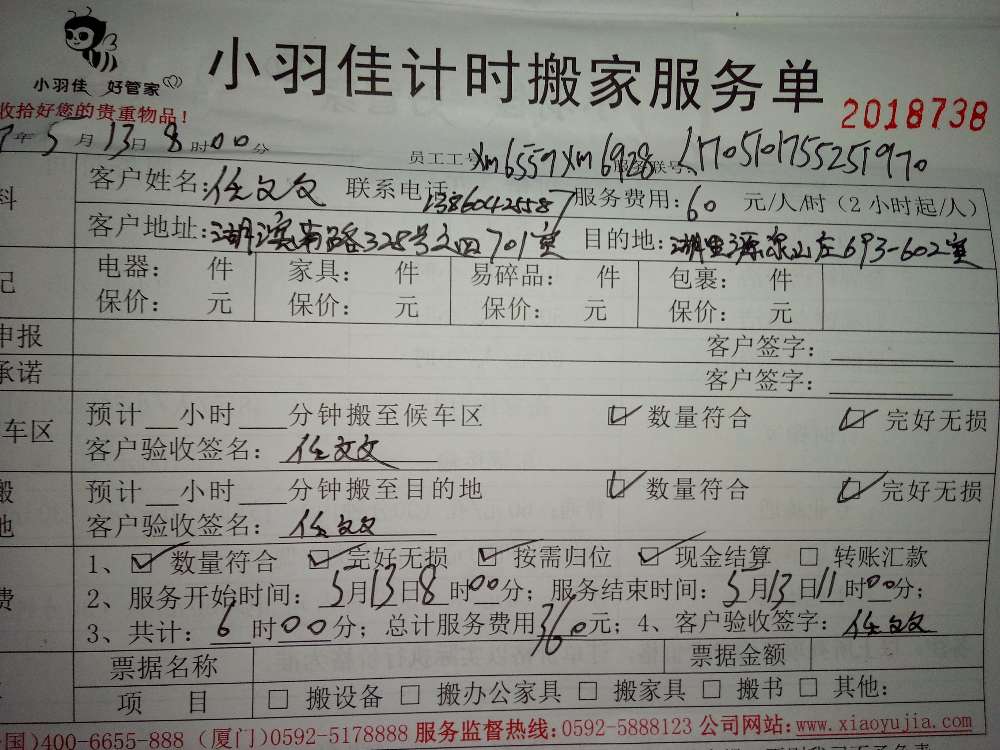 小羽佳 好管家
小羽佳计时搬家服务单
2018738
收拾好您的贵重物品!
7年5月13日8时00分
员工工号 xm6557 xm6928 服务联号 L1705101755251970
料
客户姓名:任文文 联系电话 13860425587 服务费用:60 元/人/时(2小时起/人)
客户地址:湖滨南路328号之四701室 目的地:湖里源泉山庄693-602室
记
电器: 件 家具: 件 易碎品: 件 包裹: 件
保价: 元 保价: 元 保价: 元 保价: 元
申报 客户签字:
承诺 客户签字:
车区
预计 小时 分钟搬至候车区 ☑ 数量符合 ☑ 完好无损
客户验收签名: 任文文
搬
地
预计 小时 分钟搬至目的地 ☑ 数量符合 ☑ 完好无损
客户验收签名: 任文文
费
1、☑ 数量符合 ☑ 完好无损 ☑ 按需归位 ☑ 现金结算 □ 转账汇款
2、服务开始时间: 5月13日8时00分; 服务结束时间: 5月13日11时00分;
3、共计: 6时00分; 总计服务费用360元; 4、客户验收签字: 任文文
票据名称 票据金额
项 目 □ 搬设备 □ 搬办公家具 □ 搬家具 □ 搬书 □ 其他:
国)400-6655-888 (厦门)0592-5178888 服务监督热线:0592-5888123 公司网站:www.xiaoyujia.com